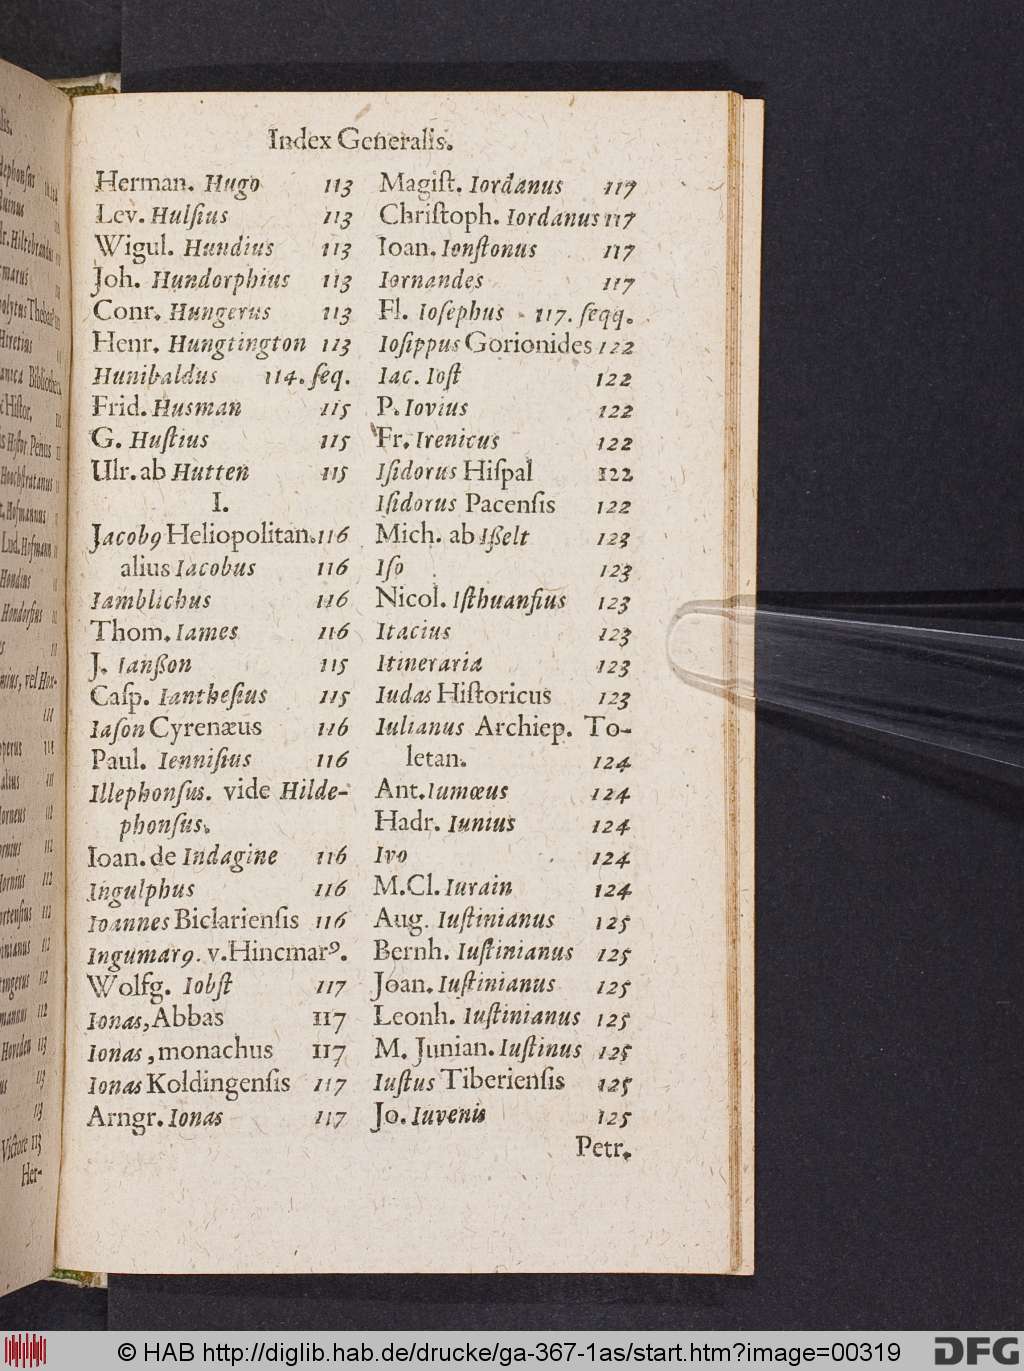 Index Generalis.
Herman. Hugo 113
Lev. Hulſius 113
Wigul. Hundius 113
Joh. Hundorphius 113
Conr. Hungerus 113
Henr. Hungtington 113
Hunibaldus 114. ſeq.
Frid. Husman 115
G. Huſtius 115
Ulr. ab Hutten 115
I.
Jacobꝰ Heliopolitan. 116
alius Iacobus 116
Iamblichus 116
Thom. Iames 116
J. Ianßon 115
Caſp. Iantheſius 115
Iaſon Cyrenæus 116
Paul. Ienniſius 116
Illephonſus. vide Hilde-
phonſus.
Ioan. de Indagine 116
Ingulphus 116
Ioannes Biclarienſis 116
Ingumarꝰ. v. Hincmarꝰ.
Wolfg. Iobſt 117
Ionas, Abbas 117
Ionas, monachus 117
Ionas Koldingenſis 117
Arngr. Ionas 117
Magiſt. Iordanus 117
Chriſtoph. Iordanus 117
Ioan. Ionſtonus 117
Iornandes 117
Fl. Ioſephus 117. ſeqq.
Ioſippus Gorionides 122
Iac. Ioſt 122
P. Iovius 122
Fr. Irenicus 122
Iſidorus Hiſpal 122
Iſidorus Pacenſis 122
Mich. ab Ißelt 123
Iſo 123
Nicol. Iſthuanſius 123
Itacius 123
Itineraria 123
Iudas Hiſtoricus 123
Iulianus Archiep. To-
letan. 124
Ant. Iumœus 124
Hadr. Iunius 124
Ivo 124
M. Cl. Iurain 124
Aug. Iuſtinianus 125
Bernh. Iuſtinianus 125
Joan. Iuſtinianus 125
Leonh. Iuſtinianus 125
M. Junian. Iuſtinus 125
Iuſtus Tiberienſis 125
Jo. Iuvenis 125
Petr.
© HAB http://diglib.hab.de/drucke/ga-367-1as/start.htm?image=00319
DFG